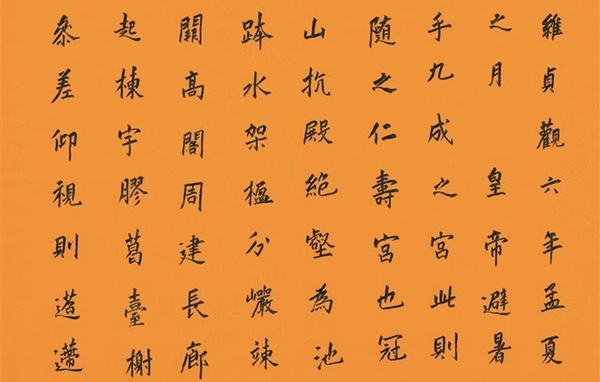 維貞觀六年孟夏
之月 皇帝避暑
乎九成之宮此則
随之仁壽宮也冠
山抗殿絕壑為池
跨水架楹分巖竦
闕高閣周建長廊
起棟宇膠葛臺榭
參差仰視則迢遰